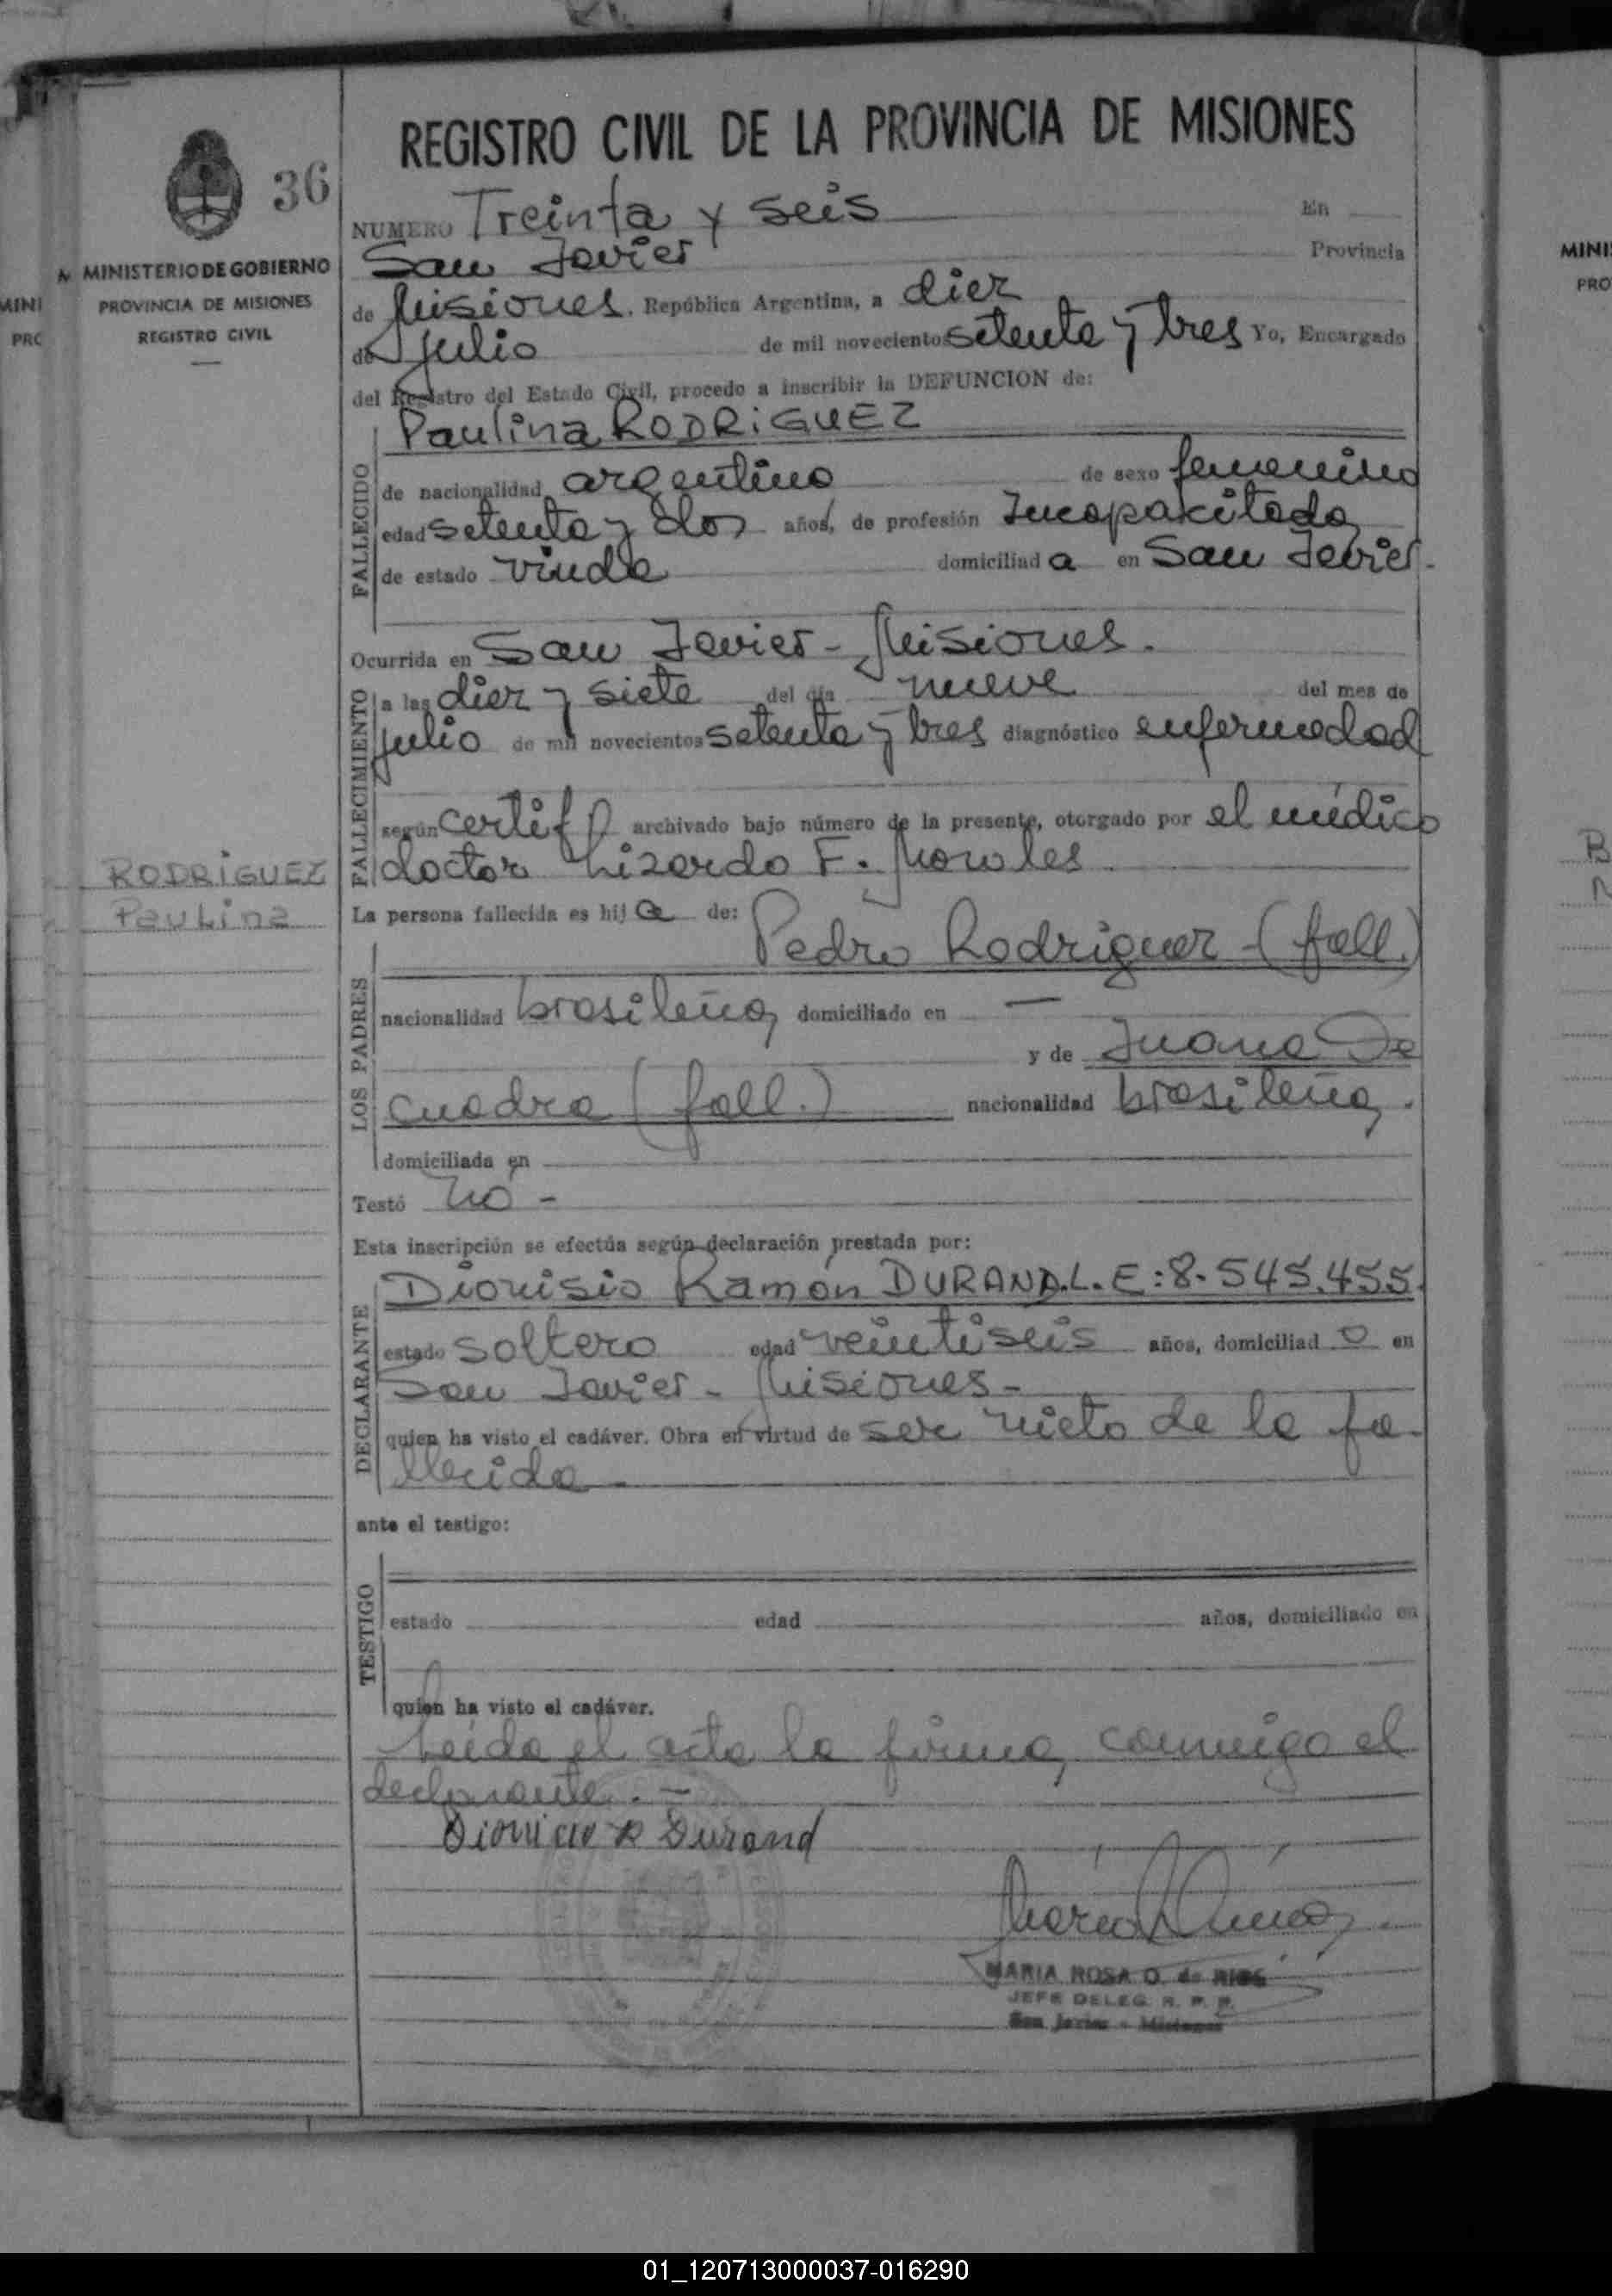 REGISTRO CIVIL DE LA PROVINCIA DE MISIONES
36
MINISTERIO DE GOBIERNO
PROVINCIA DE MISIONES
REGISTRO CIVIL
NUMERO Treinta y seis En
San Javier Provincia
de Misiones. República Argentina, a diez
de julio de mil novecientos setenta y tres Yo, Encargado
del Registro del Estado Civil, procedo a inscribir la DEFUNCION de:
Paulina RODRiGUEZ
FALLECIDO
de nacionalidad argentina de sexo femenino
edad setenta y dos años, de profesión Incapacitada
de estado viuda domiciliad a en San Javier.
Ocurrida en San Javier - Misiones.
FALLECIMIENTO
a las diez y siete del día nueve del mes de
julio de mil novecientos setenta y tres diagnóstico enfermedad
según certif archivado bajo número de la presente, otorgado por el médico
doctor Lizardo F. Morales
RODRiGUEZ
Paulina
La persona fallecida es hij a de:
Pedro Rodriguez - (fall.)
LOS PADRES
nacionalidad brasileña, domiciliado en —
y de Juana De
cuadra (fall.) nacionalidad brasileña.
domiciliada en
Testó no -
Esta inscripción se efectúa según declaración prestada por:
DECLARANTE
Dionisio Ramón DURAND.L.E:8.545.455.
estado soltero edad veintiseis años, domiciliad o en
San Javier - Misiones -
quien ha visto el cadáver. Obra en virtud de ser nieto de la fa-
llecida -
ante el testigo:
TESTIGO
estado edad años, domiciliado en
quien ha visto el cadáver.
Leída el acta la firma, conmigo el
declarante. -
Dionicio R Durand
MARIA ROSA O. de RIOS
JEFE DELEG. R. P. P.
San Javier - Misiones
MINI
PRO
01_120713000037-016290